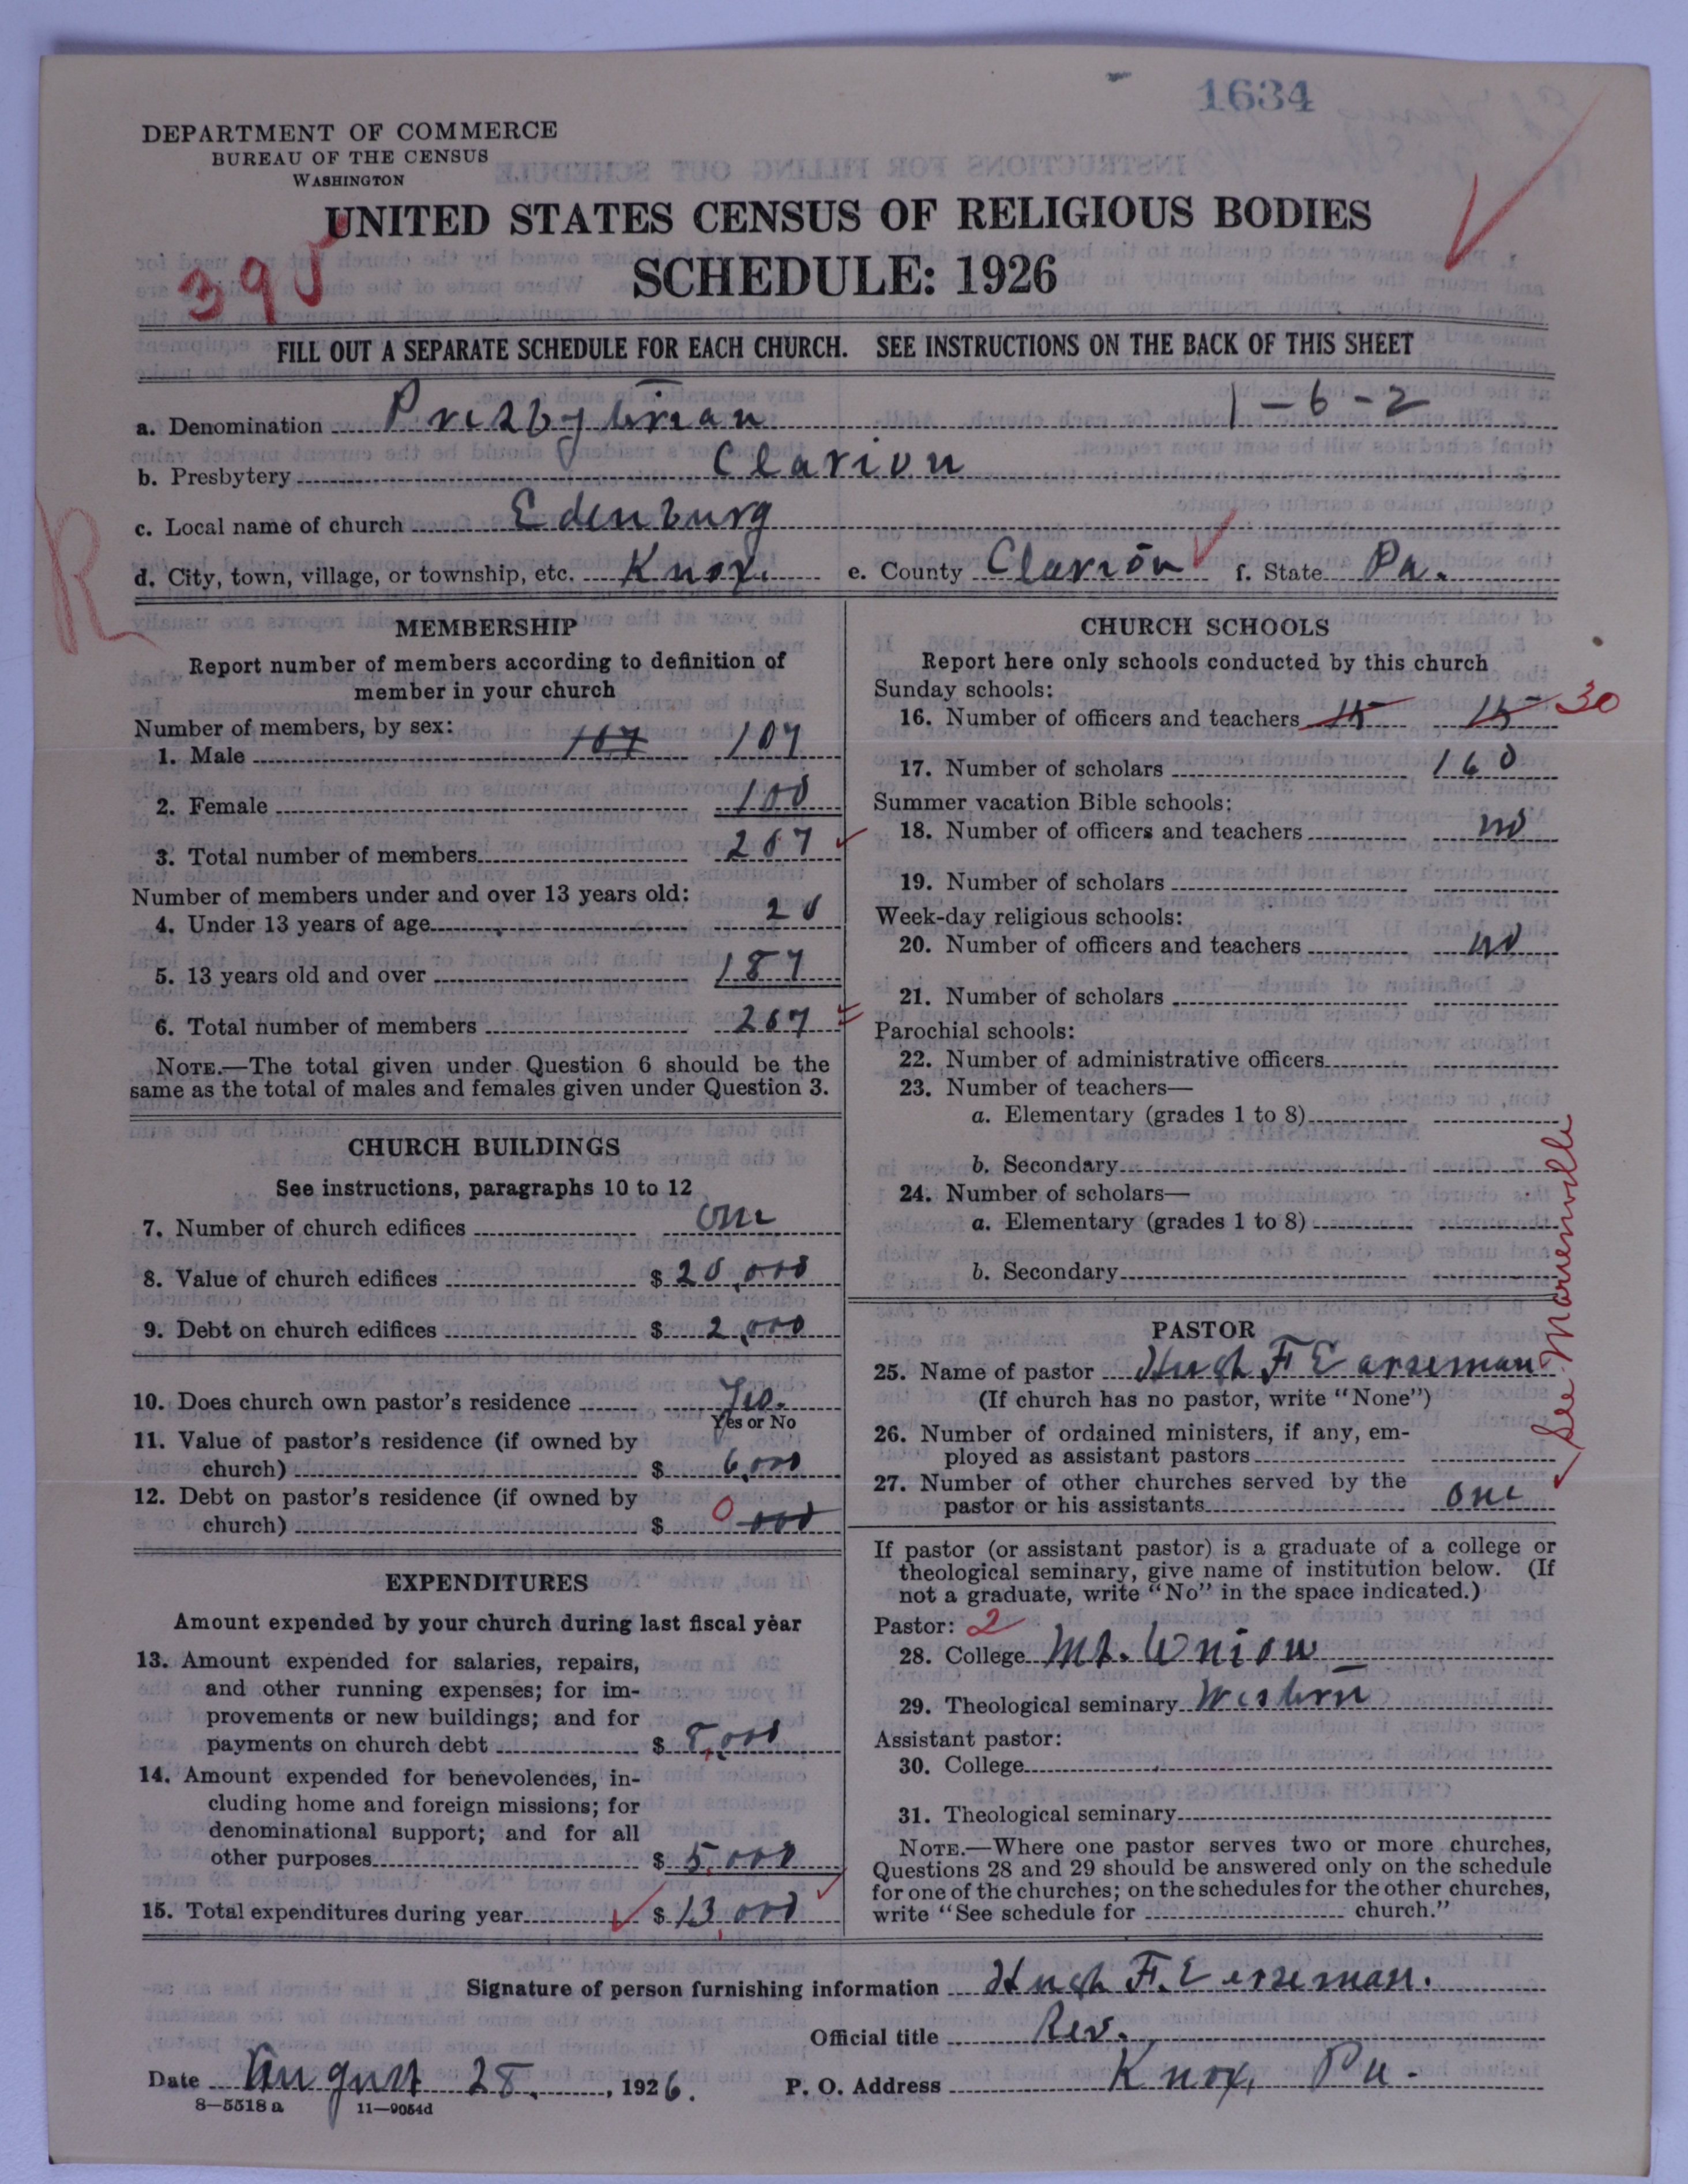 1634
DEPARTMENT OF COMMERCE
BUREAU OF THE CENSUS
WASHINGTON
UNITED STATES CENSUS OF RELIGIOUS BODIES
SCHEDULE: 1926
39
FILL OUT A SEPARATE SCHEDULE FOR EACH CHURCH. SEE INSTRUCTIONS ON THE BACK OF THIS SHEET
a. Denomination Presbyterian 1-6-2
b. Presbytery Clarion
c. Local name of church Edenburg
d. City, town, village, or township, etc. Knox. e. County Clarion f. State Pa.
R
MEMBERSHIP
Report number of members according to definition of
member in your church
Number of members, by sex:
1. Male 107 107
2. Female 100
3. Total number of members 207
Number of members under and over 13 years old:
4. Under 13 years of age 20
5. 13 years old and over 187
6. Total number of members 207
NOTE.—The total given under Question 6 should be the
same as the total of males and females given under Question 3.
CHURCH BUILDINGS
See instructions, paragraphs 10 to 12
7. Number of church edifices one
8. Value of church edifices $ 20,000
9. Debt on church edifices $ 2,000
10. Does church own pastor's residence Yes.
Yes or No
11. Value of pastor's residence (if owned by
church) $ 6,000
12. Debt on pastor's residence (if owned by
church) $ 0 000
EXPENDITURES
Amount expended by your church during last fiscal year
13. Amount expended for salaries, repairs,
and other running expenses; for im-
provements or new buildings; and for
payments on church debt $ 8,000
14. Amount expended for benevolences, in-
cluding home and foreign missions; for
denominational support; and for all
other purposes $ 5,000
15. Total expenditures during year $ 13,000
CHURCH SCHOOLS
Report here only schools conducted by this church
Sunday schools:
16. Number of officers and teachers 15 15 30
17. Number of scholars 160
Summer vacation Bible schools:
18. Number of officers and teachers no
19. Number of scholars
Week-day religious schools:
20. Number of officers and teachers no
21. Number of scholars
Parochial schools:
22. Number of administrative officers
23. Number of teachers—
a. Elementary (grades 1 to 8)
b. Secondary
24. Number of scholars—
a. Elementary (grades 1 to 8)
b. Secondary
PASTOR
25. Name of pastor Hugh F Earseman
(If church has no pastor, write "None")
26. Number of ordained ministers, if any, em-
ployed as assistant pastors
27. Number of other churches served by the
pastor or his assistants one
See Marienville
If pastor (or assistant pastor) is a graduate of a college or
theological seminary, give name of institution below. (If
not a graduate, write "No" in the space indicated.)
Pastor: 2
28. College Mt. Union
29. Theological seminary Western
Assistant pastor:
30. College
31. Theological seminary
NOTE.—Where one pastor serves two or more churches,
Questions 28 and 29 should be answered only on the schedule
for one of the churches; on the schedules for the other churches,
write "See schedule for church."
Signature of person furnishing information Hugh F. Earseman.
Official title Rev.
Date August 28, 1926. P. O. Address Knox, Pa.
8—5518a 11—9054d